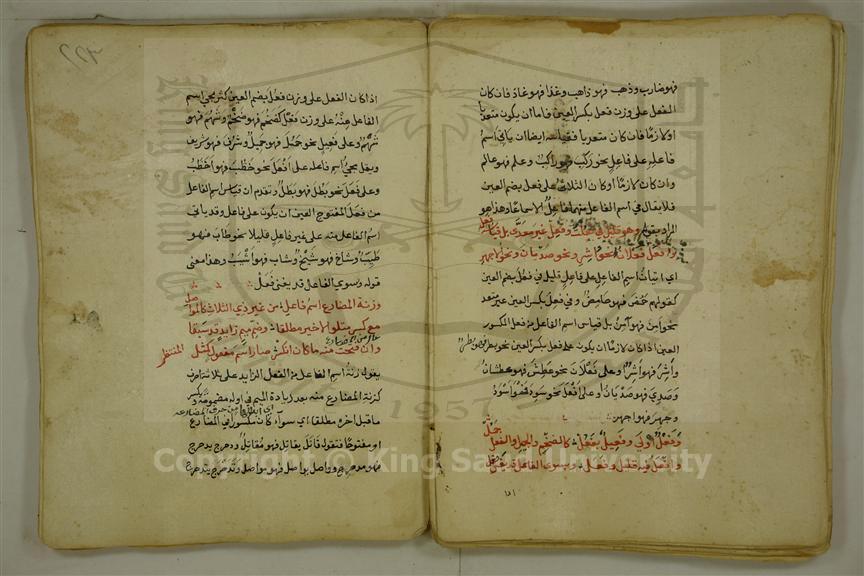 فهو ضارب وذهب فهو ذاهب وغذا فهو غاذ فان كان
الفعل على وزن فعل بكسر العين فاما ان يكون متعديا
او لازما فان كان متعديا فقياسه ايضا ان ياتي اسم
فاعله على فاعل نحو ركب فهو راكب وعلم فهو عالم
وان كان لازما او كان الثلاثي على فعل بضم العين
فلا يقال في اسم الفاعل منهما فاعل الا سماعا وهذا هو
المراد بقوله وهو قليل في فعلت وفعل غير معدى بل قياسه فعل
وافعل فعلان نحو اشر ونحو صديان ونحو الاجهر
اي اتيان اسم الفاعل على فاعل قليل في فعل بضم العين
كقولهم حمض فهو حامض وفي فعل بكسر العين غير متعد
نحو امن فهو آمن بل قياس اسم الفاعل من فعل المكسور
العين اذا كان لازما ان يكون على فعل بكسر العين نحو بطر فهو بطر
واشر فهو اشر وعلى فعلان نحو عطش فهو عطشان
وصدي فهو صديان وعلى افعل نحو سود فهو اسود
وجهر فهو اجهر
وفعل اولى وفعيل بفعل كالضخم والجميل والفعل جمل
وافعل فيه قليل وفعل وبسوى الفاعل قد يغنى فعل
اذا كان الفعل على وزن فعل بضم العين كثر مجي اسم
الفاعل منه على وزن فعل كضخم فهو ضخم وشهم فهو
شهم وعلى فعيل نحو جمل فهو جميل وشرف فهو شريف
ويقل مجي اسم فاعله على افعل نحو خطب فهو اخطب
وعلى فعل نحو بطل فهو بطل وتقدم ان قياس اسم الفاعل
من فعل المفتوح العين ان يكون على فاعل وقد ياتي
اسم الفاعل منه على غير فاعل قليلا نحو طاب فهو
طيب وشاخ فهو شيخ وشاب فهو اشيب وهذا معنى
قوله وبسوى الفاعل قد يغنى فعل
وزنة المضارع اسم فاعل من غير ذي الثلاث كالمواصل
مع كسر متلو الاخير مطلقا وضم ميم زايد قد سبقا
وان فتحت منه ما كان انكسر صار اسم مفعول كمثل المنتظر
يقول زنة اسم الفاعل من الفعل الزايد على ثلاثة احرف
كزنة المضارع منه بعد زيادة الميم في اوله مضمومة ويكسر
ما قبل اخره مطلقا اي سواء كان مكسورا في المضارع
او مفتوحا فتقول قاتل يقاتل فهو مقاتل ودحرج يدحرج
فهو مدحرج وواصل يواصل فهو مواصل وتدحرج يتدحرج
1957
Copyright © King Saud University